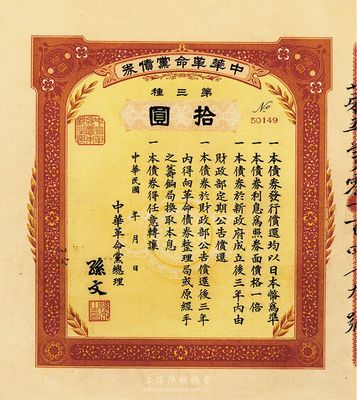 中華革命黨債券
第三種
拾圓
No
50149
一本債券發行償還均以日本幣為準
一本債券利息為照券面價格一倍
一本債券於新政府成立後三年內由
財政部定期公告償還
一本債券於財政部公告償還後三年
內得向革命債券整理局或原經手
之籌餉局換取本息
一本債券得任意轉讓
中華民國 年 月 日
中華革命黨總理
孫文